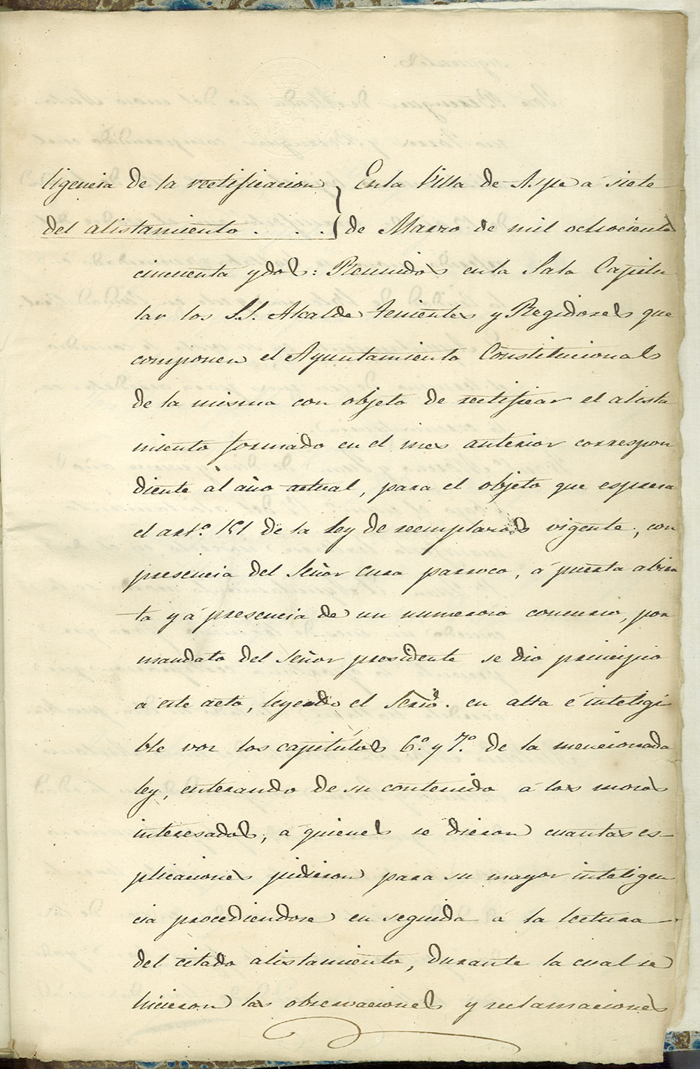 ligencia de la rectificacion } En la Villa de Aspe á siete
del alistamiento . . . . } de Marzo de mil ochociento
cincuenta y dos: Reunidos en la Sala Capitu
lar los S.S. Alcalde Tenientes y Regidores que
componen el Ayuntamiento Constitucional
de la misma con objeto de rectificar el alista
miento formado en el mes anterior correspon
diente al año actual, para el objeto que espresa
el art.º 151 de la ley de reemplazos vigente, con
presencia del Señor cura parroco, á puerta abier
ta y á presencia de un numeroso concurso, por
mandato del Señor presidente se dio principio
á este acto, leyendo el Srio. en alta é inteligi
ble voz los capitulos 6.º y 7.º de la mencionada
ley, enterando de su contenido á los mozos
interesados, á quienes se dieron cuantas es
plicaciones pidieron para su mayor inteligen
cia procediendose en seguida á la lectura
del citado alistamiento, durante la cual se
hicieron las observaciones y reclamaciones